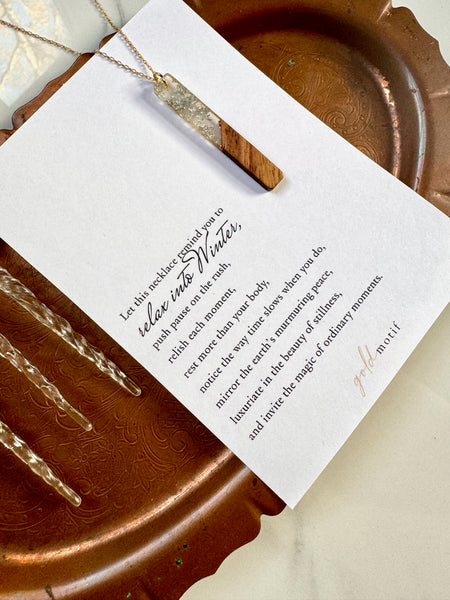 Let this necklace remind you to
relax into Winter,
push pause on the rush,
relish each moment,
rest more than your body,
notice the way time slows when you do,
mirror the earth's murmuring peace,
luxuriate in the beauty of stillness,
and invite the magic of ordinary moments.
gold motif